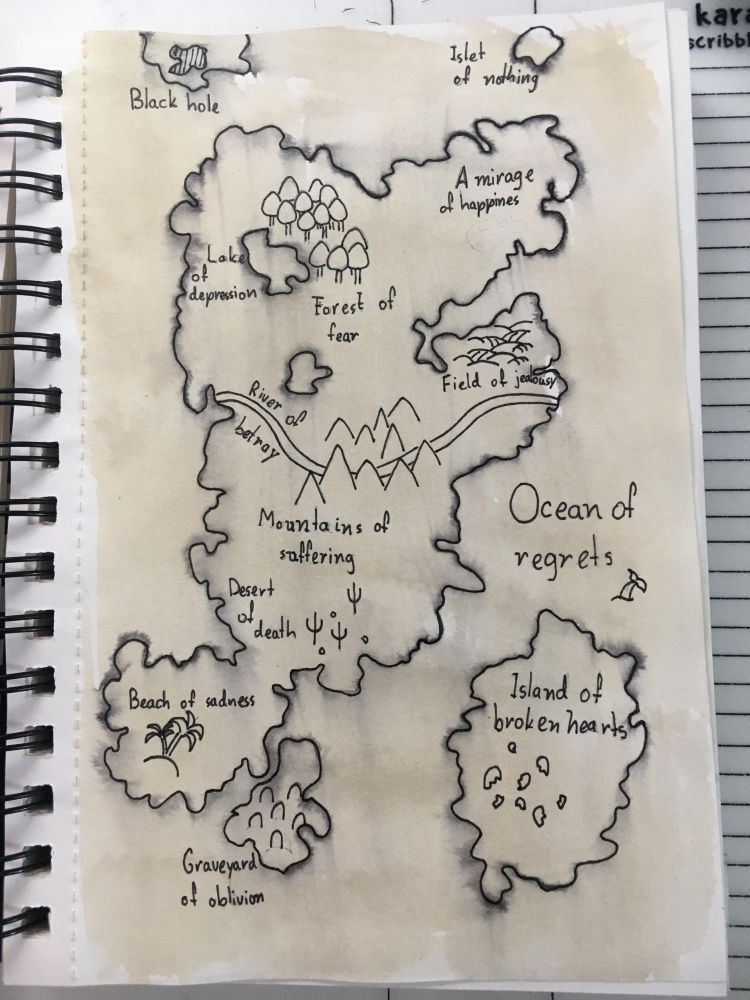 kara
scribbl
Islet
of nothing
Black hole
A mirage
of happines
Lake
of
depression
Forest of
fear
Field of jealousy
River of
betray
Ocean of
regrets
Mountains of
suffering
Desert
of
death
Island of
broken hearts
Beach of sadness
Graveyard
of oblivion